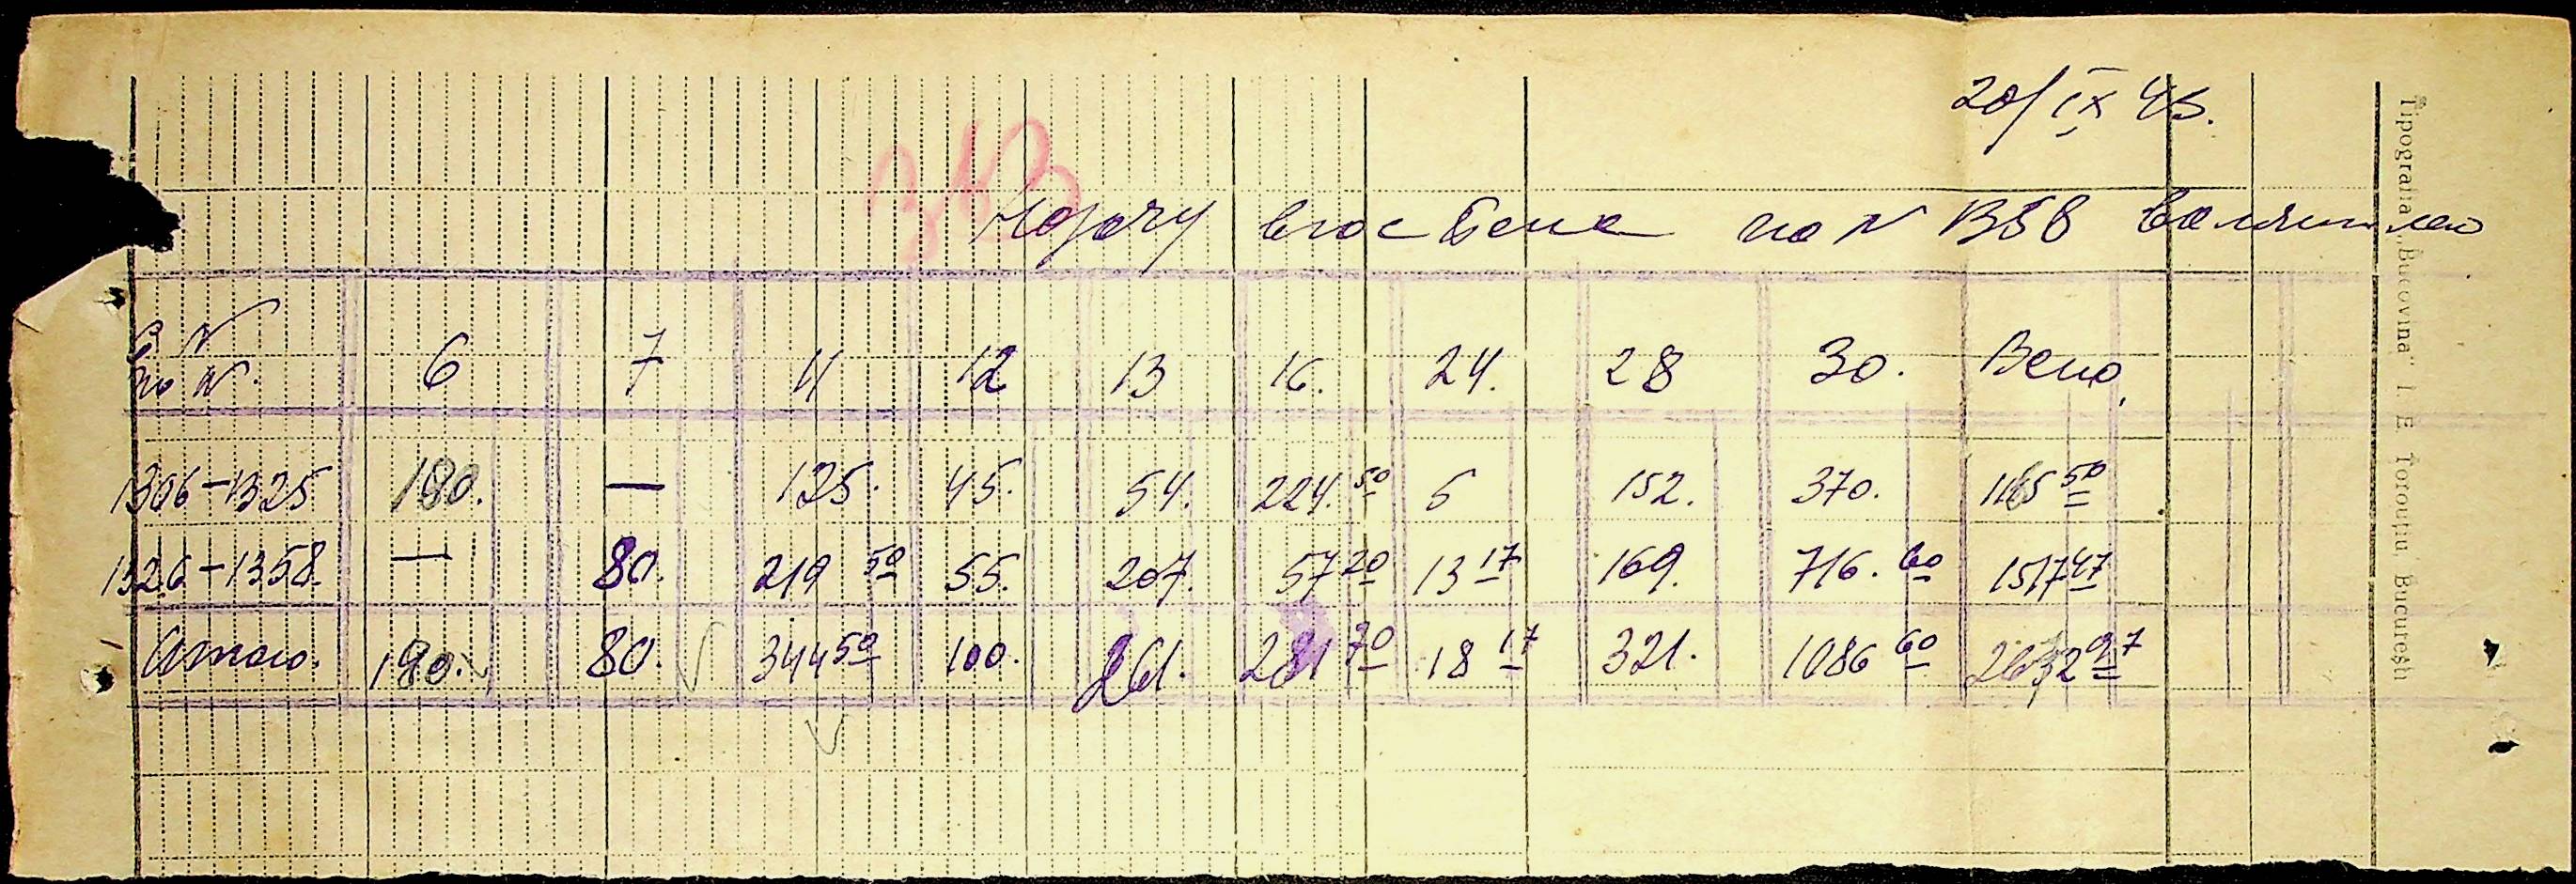 20/IX 45.
по N 1358 включительно
с N
по N. 6 7 11 12 13 16. 24. 28 30. Всего
1306-1325 180. — 125. 45. 54. 224.50 5 152. 370. 1155 50
1326-1358. — 80. 219 50 55. 207. 57 20 13 17 169. 716.60 1517 47
Итого. 180. 80. 344 50 100. 261. 281 70 18 17 321. 1086 60 2672 97
Tipografia „Bucovina" I. E. Toroutiu, Bucureşti